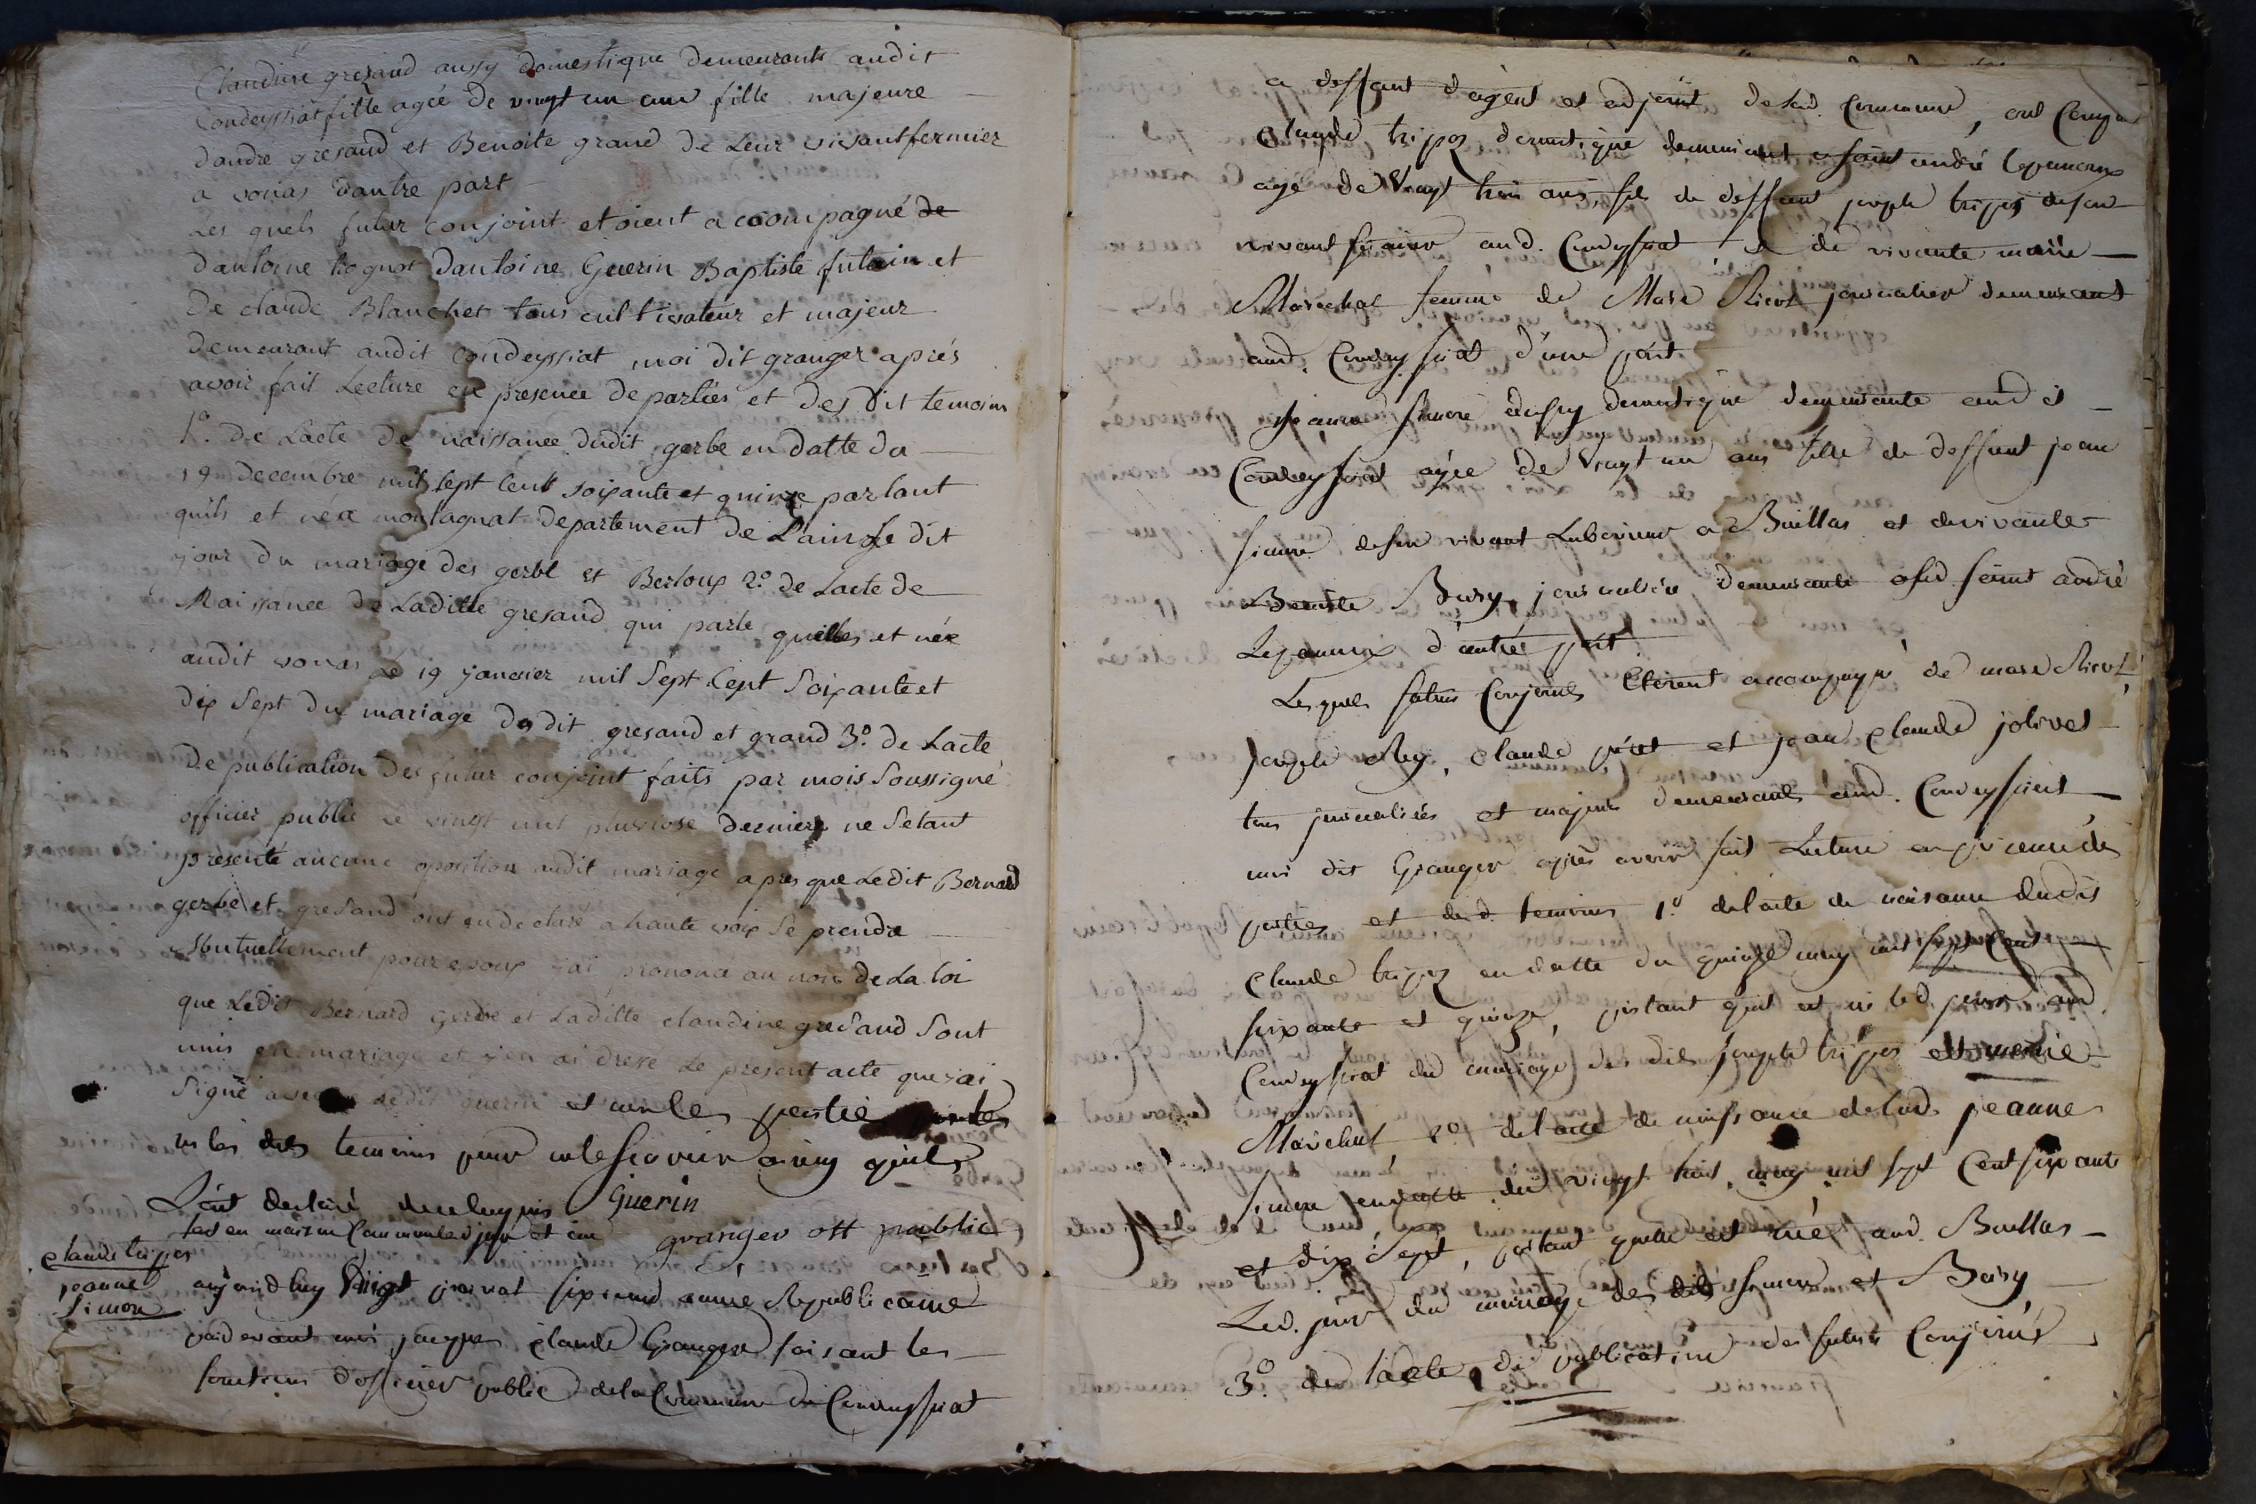 Claudine gresaud aussy domestique demeurants audit
Condeyssiat fille agée de vingt un ans fille majeure
d'andré gresaud et Benoite grand de Leur vivant fermier
a vonas dautre part
Les quels futur conjoint etoient acoompagné de
dantoine rognot dantoine Guerin Baptiste futain et
de claude Blanchet tous cultivateur et majeur
demeurant audit Condeyssiat moi dit granger aprés
avoir fait Lecture en presence de parties et des dit temoins
1º. de Lacte de naissance dudit gerbe en datte du
19 decembre mil sept cent soixante et quinze portant
quils et né a montagnat departement de Lain Le dit
jour du mariage des gerbe et Berloup 2º de Lacte de
Naissance de Laditte gresaud qui parte quelles et née
audit vonas Le 19 janvier mil sept cent soixante et
dix sept du mariage du dit gresaud et grand 3º. de Lacte
de publication des futur conjoint faits par mois soussigné
officier public Le vingt uit pluviose derniere ne setant
presenté aucune oposition audit mariage apres que Ledit Bernard
gerbe et gresaud ont eu declaré a haute voix se prendre
Mutuellement pour epoux jai prononcé au nom de La loi
que Ledit Bernard gerbe et Laditte claudine gresaud sont
unis en mariage et j'en ai dressé Le present acte que jai
signé avec Ledit guerin et non les partie
ni les dits temoins pour ne le scavoir ainsy quils
L'ont declaré de ce requis Guerin
fait en maison Commune les jour et an granger off public
claude tripoz
jeanne
simon
aujourd huy Vingt pluviose six année Republicaine
pardevant moi jacques claude Granger faisant les
fonctions d'officier public de la Commune de Condeyssiat
a deffaut d'agent et adjoint de lad. Commune, ont Comparu
Claude tripoz domestique demeurant a saint andré lepanoux
agé de Vingt trois ans, fils de deffunt joseph tripoz de son
vivant fermier aud. Condeyssiat et de vivante marie
Marechal femme de Marc Ricol journalier demeurant
aud. Condeyssiat d'une part
Jeanne simon aussy domestique demeurante audit
Condeyssiat agée de Vingt un ans fille de deffunt jean
simon de son vivant Laboureur a Buellas et de vivante
Benoite Bury journaliére demeurante aud. saint andré
Lepanoux d'autre part
Lesquels futurs Conjoints Etoient accompagné de marc Ricol
joseph Rey, claude perret et jean claude jolivet
tous journaliers et majeurs demeurants aud. Condeyssiat
moi dit Granger aprés avoir fait Lecture en presence des
parties et desd. temoins 1º de l'acte de naissance dudit
Claude tripoz en datte du quinze may mil sept Cent
soixante et quinze, portant quil est né led. jour aud.
Condeyssiat du mariage des dits joseph tripoz et marie
Marechal 2º de l'acte de naissance de lad. jeanne
simon en datte du vingt huit may mil sept Cent soixante
et dix sept, portant quelle est née aud. Buellas
Led. jour du mariage des dits simon et Bury
3º. de l'acte de publication des futurs Conjoints